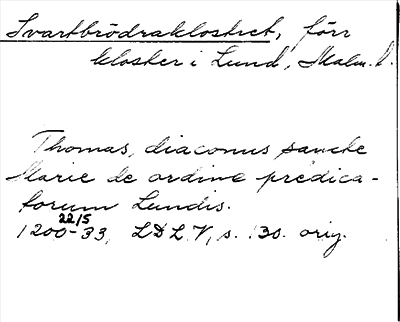 Svartbrödraklostret, förr
kloster i Lund, Malm. l.
Thomas, diaconus sancte
Marie de ordine predica-
torum Lundis.
22/5
1200-33, LDLV, s. 30. orig.